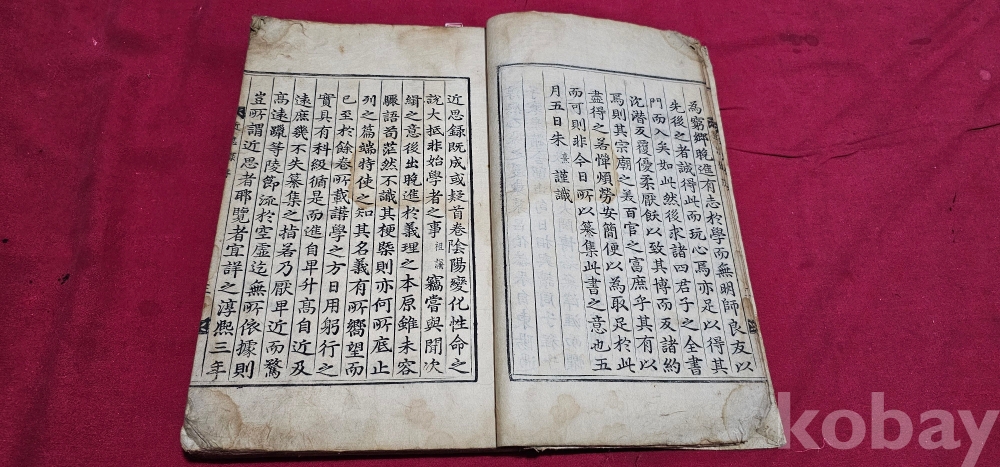 為窮鄉晚進有志於學而無明師良友以
先後之者誠得此而玩心焉亦足以得其
門而入矣如此然後求諸四君子之全書
沈潛反覆優柔厭飫以致其博而反諸約
焉則其宗廟之美百官之富庶乎其有以
盡得之若憚煩勞安簡便以為取足於此
而可則非今日所以纂集此書之意也五
月五日朱熹謹識
近思録既成或疑首卷陰陽變化性命之
說大抵非始學者之事祖謙竊嘗與聞次
緝之意後出晚進於義理之本原雖未容
驟語苟茫然不識其梗槩則亦何所底止
列之篇端特使之知其名義有所嚮望而
已至於餘卷所載講學之方日用躬行之
實具有科級循是而進自卑升高自近及
遠庶幾不失纂集之指若乃厭卑近而騖
高遠躐等陵節流於空虛迄無所依據則
豈所謂近思者耶覽者宜詳之淳熙三年
kobay